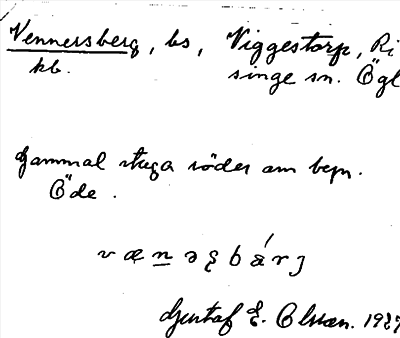 Vennersberg, bs, Viggestorp, Ri
kb. singe sn. Ögl
Gammal stuga söder om byn.
Öde.
Gustaf E. Olsson. 1927